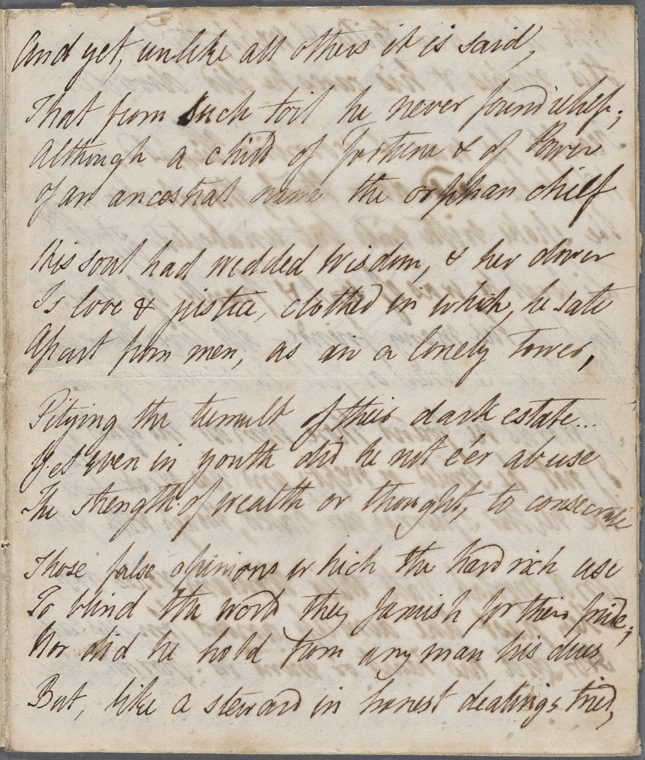 And yet, unlike all others it is said,
That from such toil he never found relief;
Although a child of fortune & of Power
Of an ancestral name the orphan chief
His soul had wedded Wisdom, & her dower
Is love & justice, clothed in which, he sate
Apart from men, as in a lonely tower,
Pitying the tumult of their dark estate...
Yet even in youth did he not e'er abuse
The strength of wealth or thought, to consecrate
Those false opinions which the hard rich use
To blind the world they famish for their pride;
Nor did he hold from any man his dues
But, like a steward in honest dealings tried,